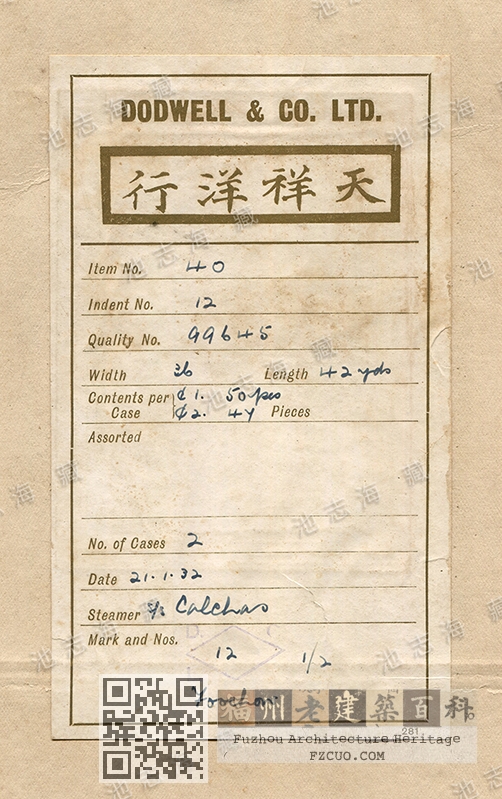 DODWELL & CO. LTD.
行洋祥天
Item No. 40
Indent No. 12
Quality No. 99645
Width 36 Length 42 yds
Contents per Case ¢1. 50 pcs
¢2. 47 Pieces
Assorted
No. of Cases 2
Date 21.1.32
Steamer Calchas
Mark and Nos.
12 1/2
Foochow
福州老建築百科
281
Fuzhou Architecture Heritage
FZCUO.COM
池志海藏